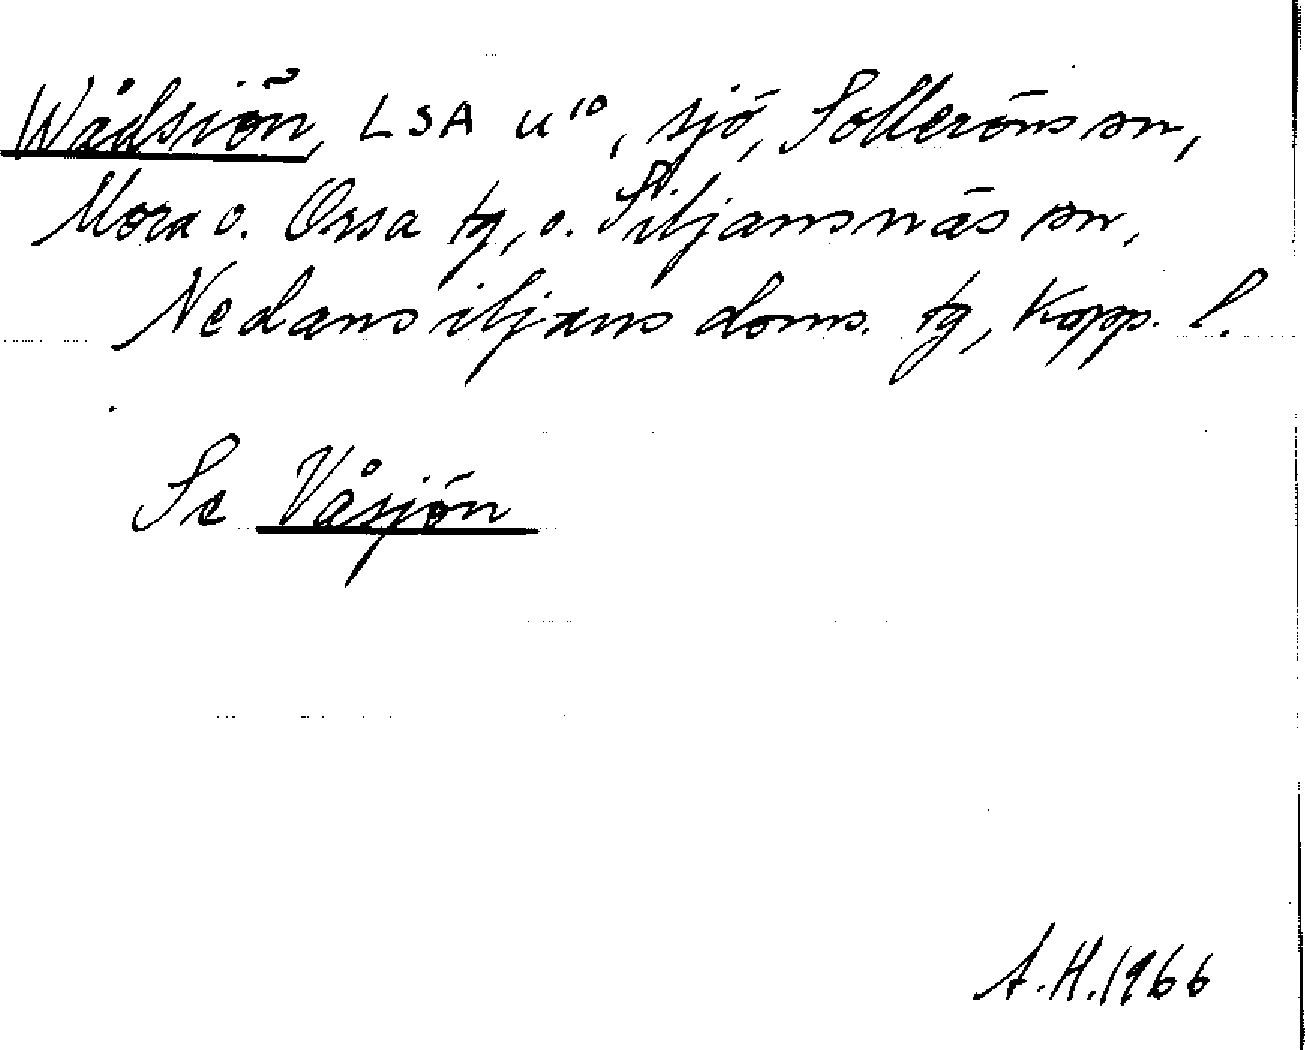 Wådsiön, LSA u¹⁰, sjö, Solleröns sn,
Mora o. Orsa tg, o. Siljansnäs sn,
Nedansiljans doms. tg, Kopp. l.
Se Våsjön
A.H. 1966